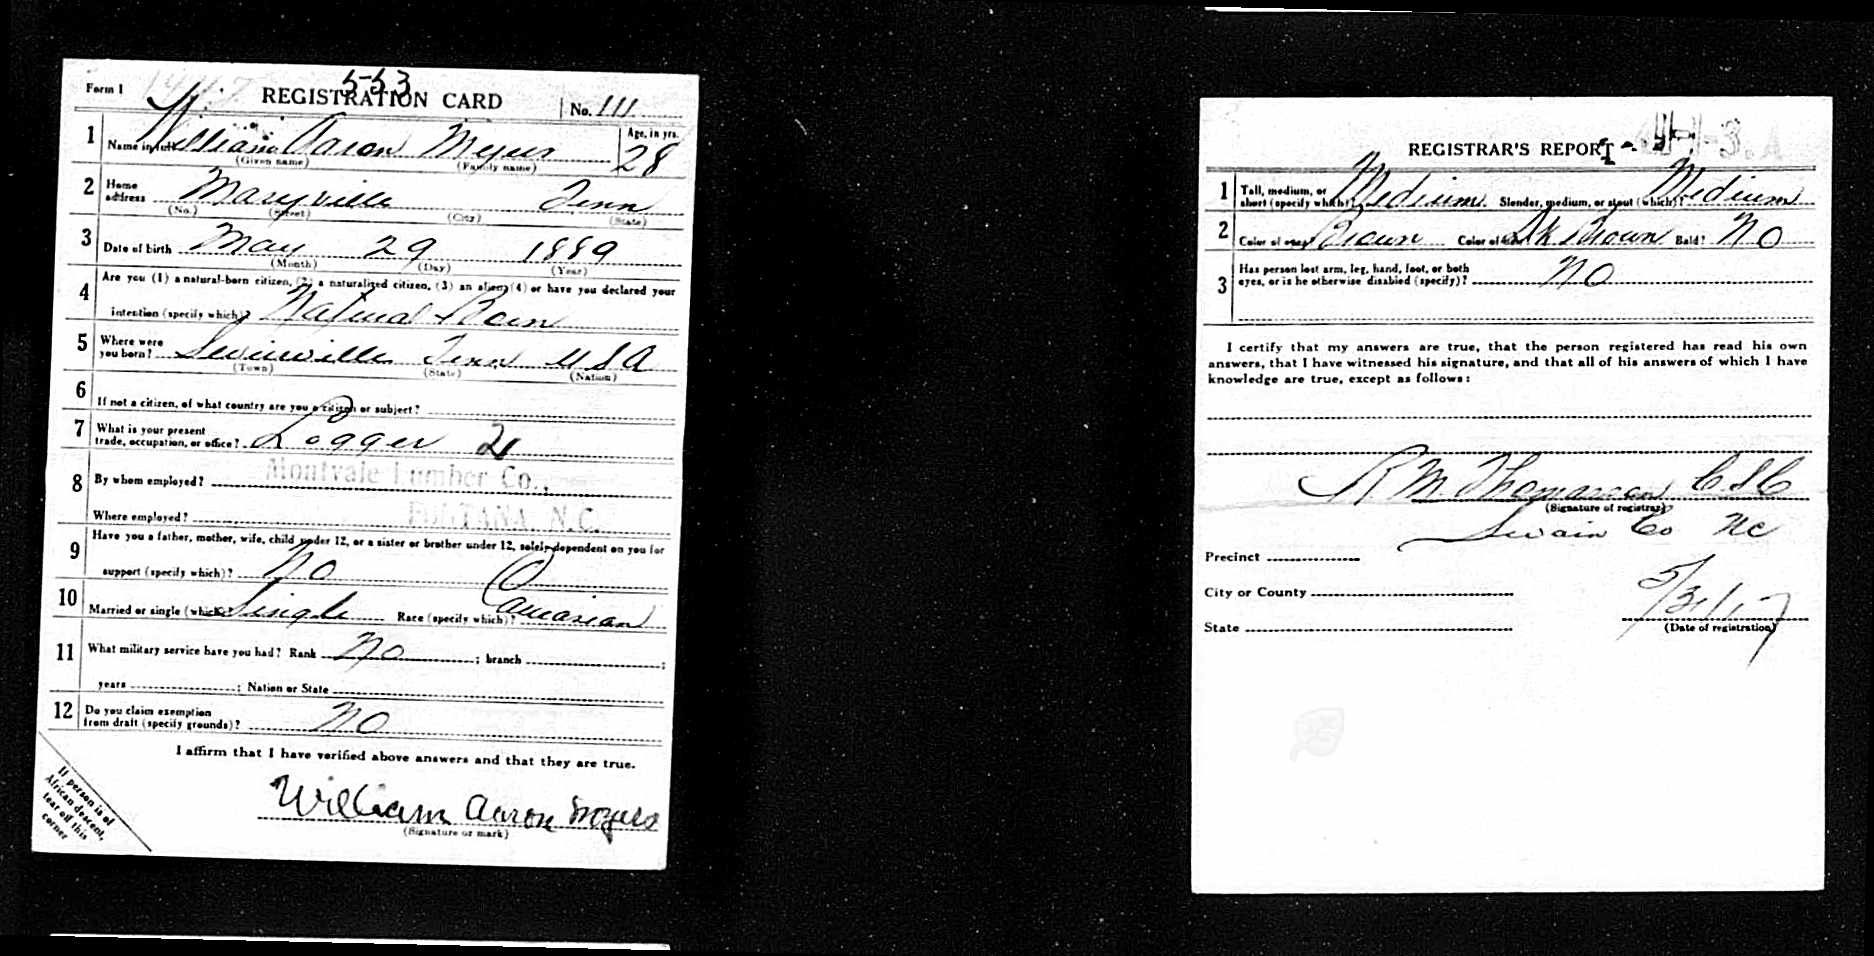 553
Form 1 REGISTRATION CARD No. 111
1 Name in full William Aaron Myers Age, in yrs. 28
(Given name) (Family name)
2 Home address Maryville Tenn
(No.) (Street) (City) (State)
3 Date of birth May 29 1889
(Month) (Day) (Year)
4 Are you (1) a natural-born citizen, (2) a naturalized citizen, (3) an alien, (4) or have you declared your
intention (specify which)? Natural Born
5 Where were you born? Sevierville Tenn USA
(Town) (State) (Nation)
6 If not a citizen, of what country are you a citizen or subject?
7 What is your present trade, occupation, or office? Logger
8 By whom employed? Montvale Lumber Co.,
Where employed? FONTANA, N.C.
9 Have you a father, mother, wife, child under 12, or a sister or brother under 12, solely dependent on you for
support (specify which)? No
10 Married or single (which)? Single Race (specify which)? Caucasian
11 What military service have you had? Rank No ; branch ;
years ; Nation or State
12 Do you claim exemption from draft (specify grounds)? No
I affirm that I have verified above answers and that they are true.
William Aaron Myers
(Signature or mark)
If person is of
African descent,
tear off this
corner
REGISTRAR'S REPORT
1 Tall, medium, or short (specify which)? Medium Slender, medium, or stout (which)? Medium
2 Color of eyes Brown Color of hair Dk Brown Bald? No
3 Has person lost arm, leg, hand, foot, or both
eyes, or is he otherwise disabled (specify)? No
I certify that my answers are true, that the person registered has read his own
answers, that I have witnessed his signature, and that all of his answers of which I have
knowledge are true, except as follows:
R M Thomasson CSC
(Signature of registrar)
Swain Co NC
Precinct
City or County
State
5/31/17
(Date of registration)